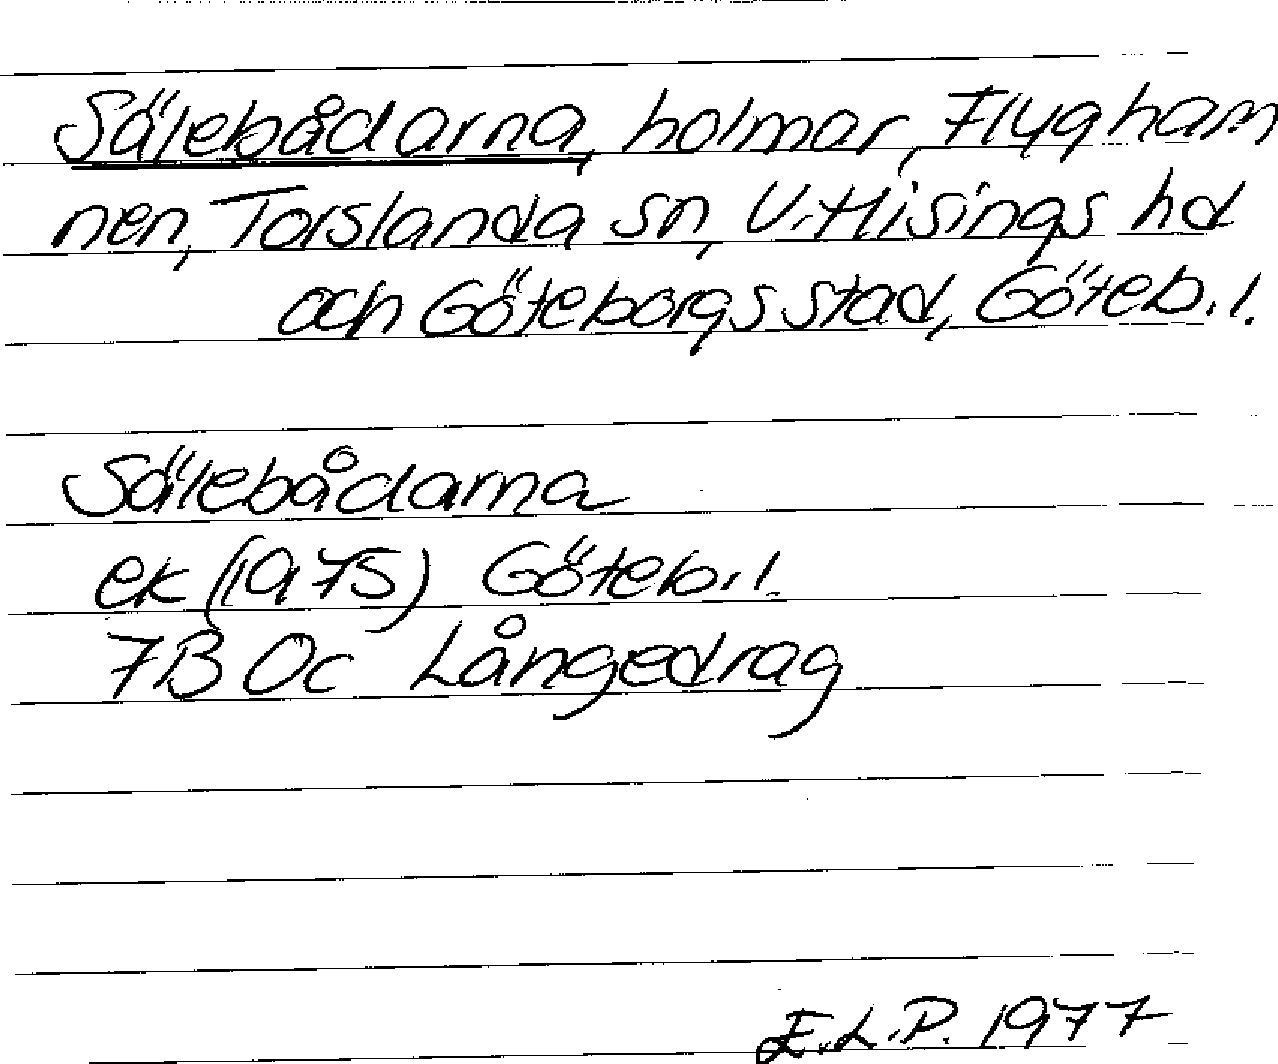 Sälebådarna, holmar, Flygham
nen, Torslanda sn, V. Hisings hd
och Göteborgs stad, Göteb. l.
Sälebådarna
ek (1975) Göteb. l.
7B 0c Långedrag
E.L.P. 1977